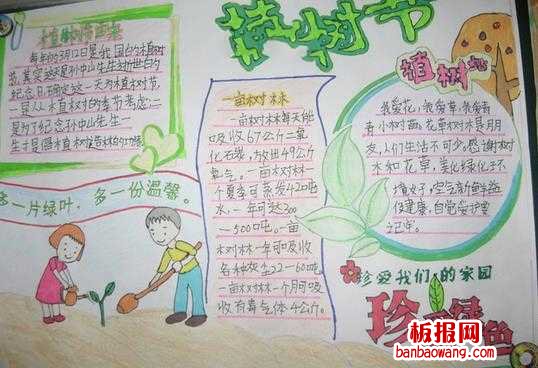 植树节
植树节的由来
每年的3月12日是我国的植树
节,其实这是孙中山先生逝世日的
纪念日,确定这一天为植树节
一是从植树的季节考虑;二
是为了纪念孙中山先生一
生
多一片绿叶,多一份温馨。
一亩树林
一亩树林每天能
吸收67公斤二氧
化碳,放出49公斤
氧气。一亩树林一
个夏季可蒸发420吨
水,一年可达300
—500吨。一亩
树林一年可吸收
各种灰尘22—60吨,
一亩树林一个月可吸
收有毒气体4公斤。
植树
我爱花,我爱草,我爱青
青小树苗。花草树木是朋
友,人们生活不可少。感谢树
木和花草,美化绿化手不
空气新鲜
促健康,自觉爱护要
牢记。
珍爱我们的家园
珍 绿色
板报网
banbaowang.com